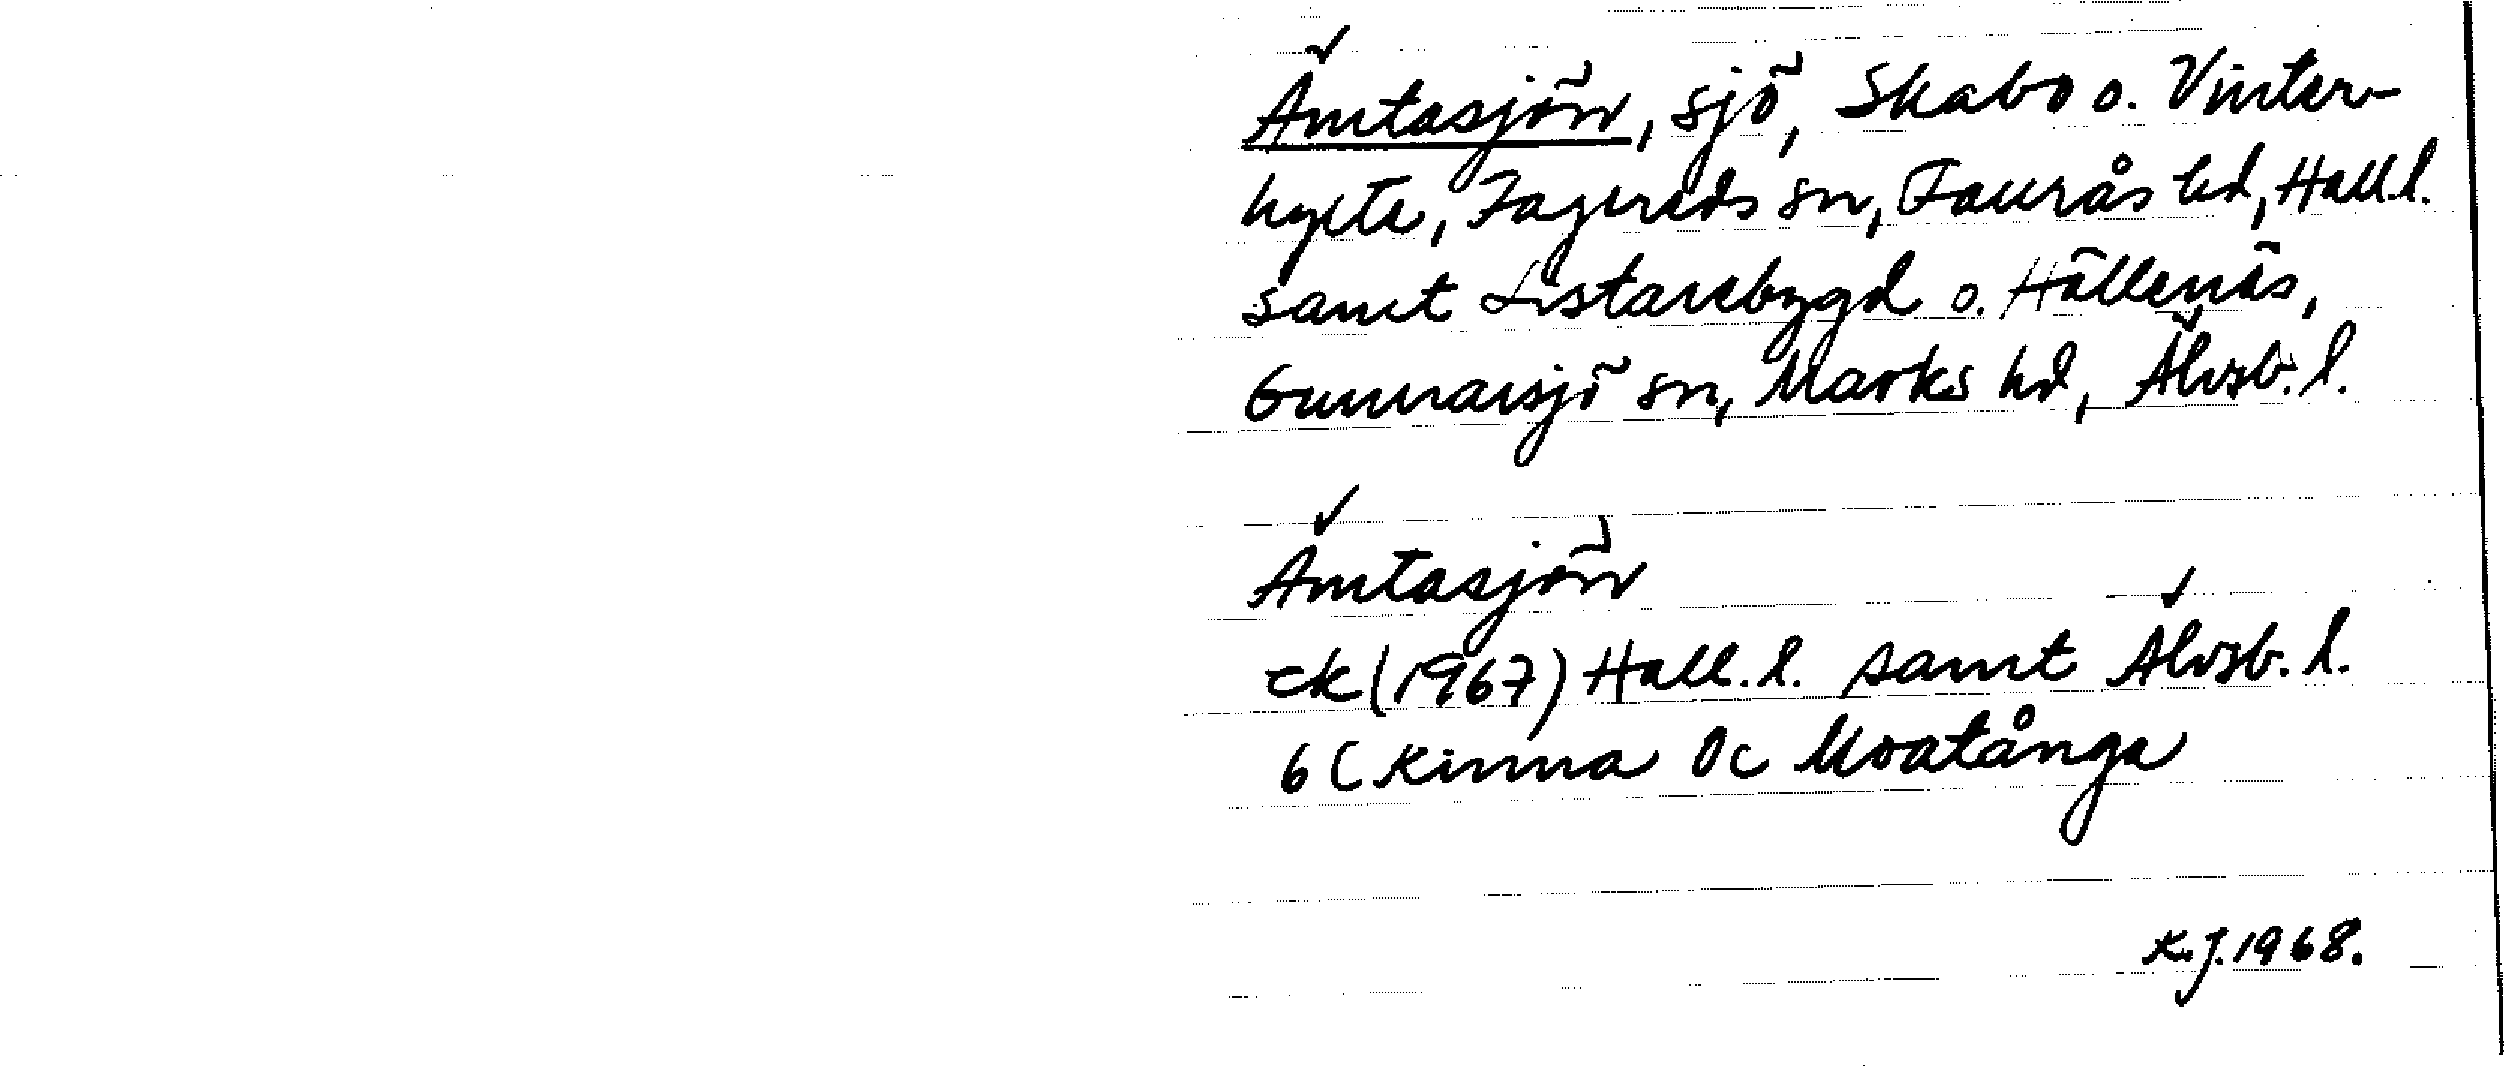 Ämtasjön, sjö, Skabo o. Vinter-
hylte, Fagereds sn, Faurås hd, Hall.l.
samt Listarebygd o. Hällenäs,
Gunnarsjö sn, Marks hd, Älvsb. l.
Ämtasjön
ek (1967) Hall. l. samt Älvsb. l.
6 C Kinna 0c Moatånga
K.J. 1968.